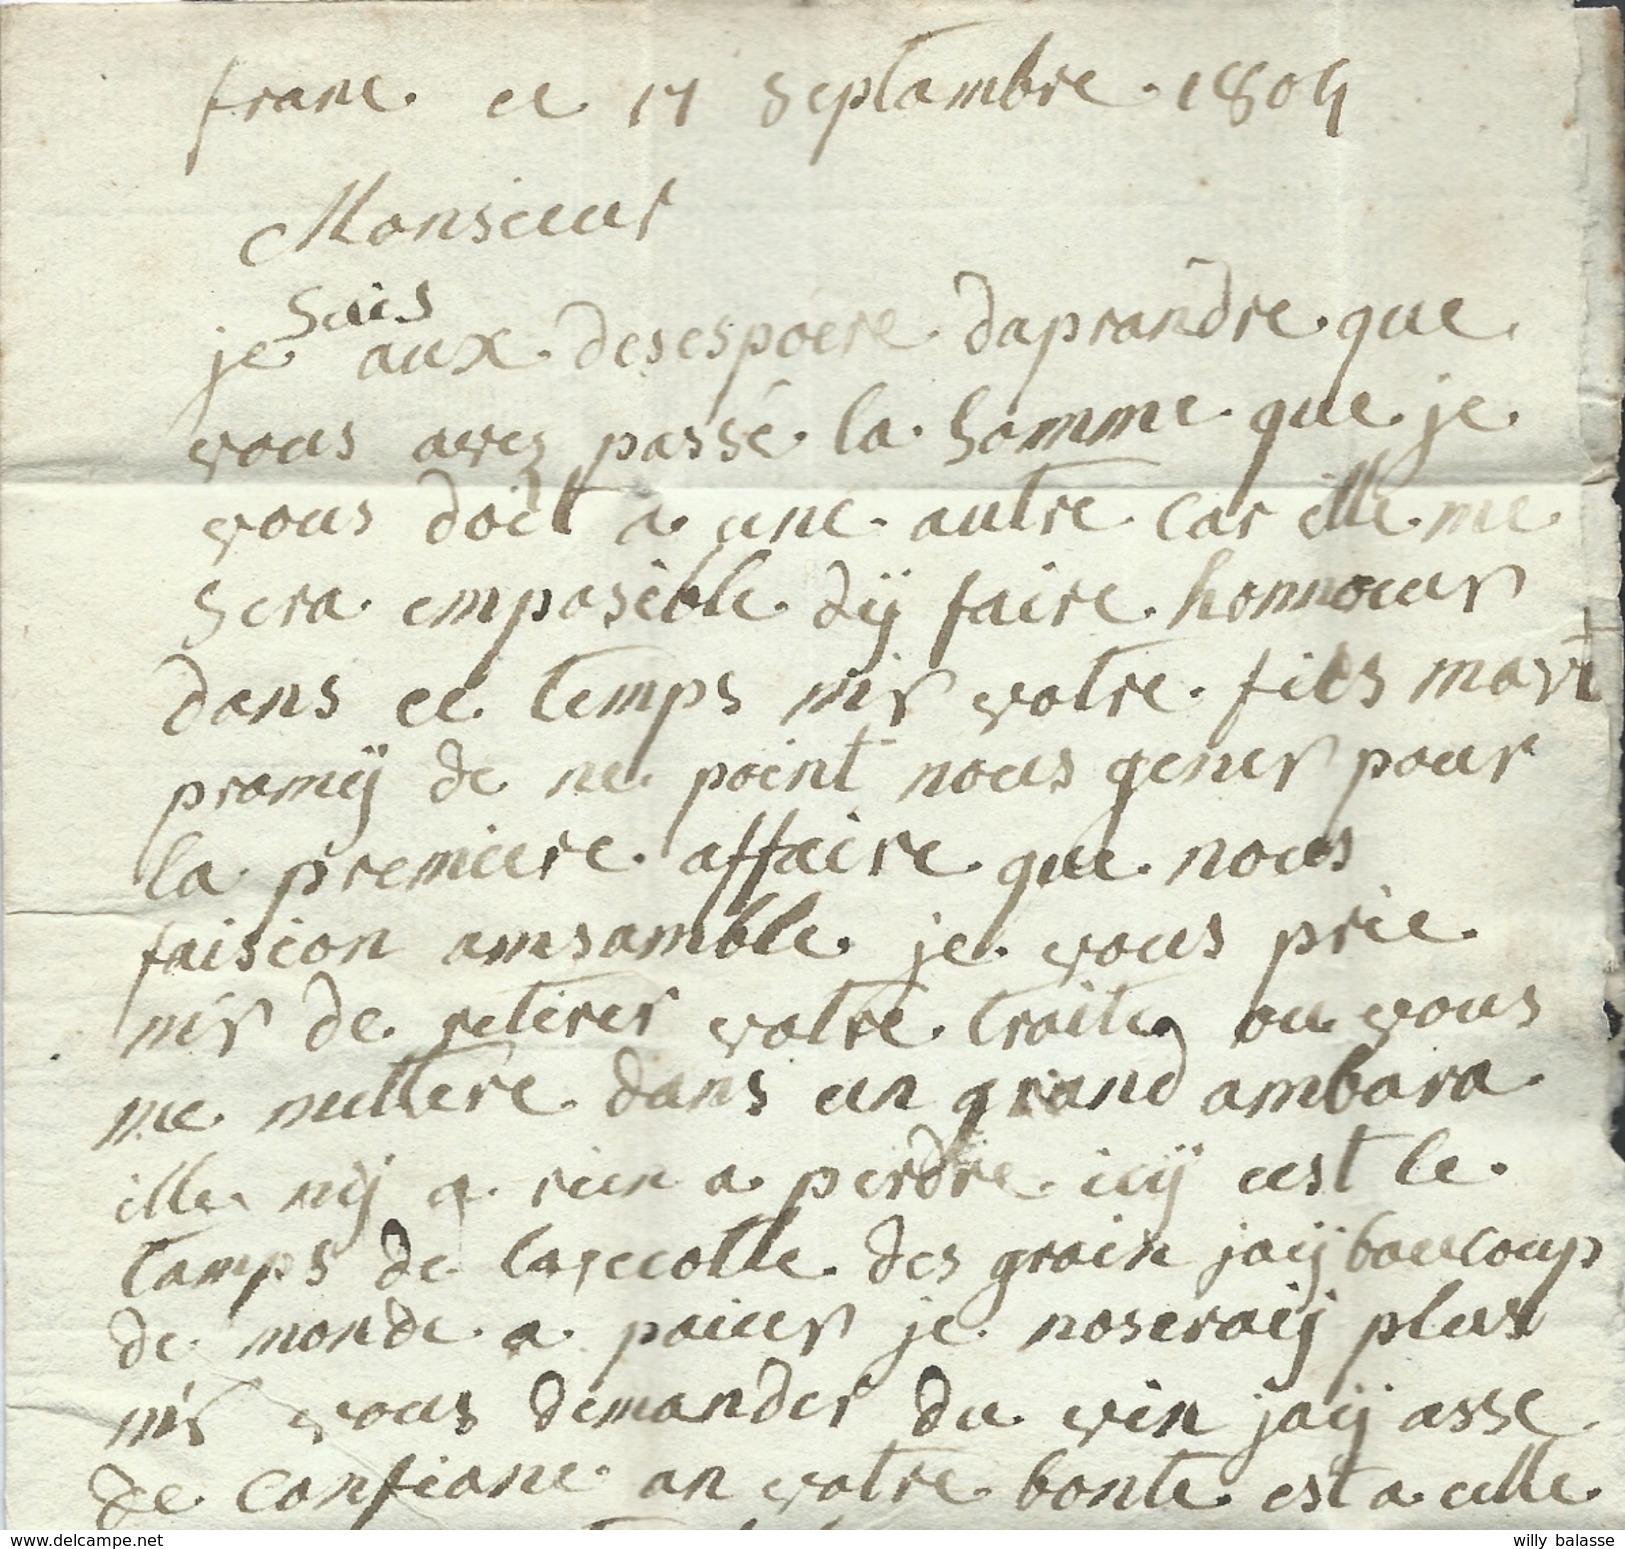 franc ce 17 Septambre 1804
Monsieur
je suis aux desespoere daprandre que
vous aves passé la somme que je
vous doit a une autre car ille me
sera emposible dÿ faire honnoeur
dans ce temps mr votre fils mavt
promÿ de ne point nous gener pour
la premiere affaire que nous
faision amsamble je vous prie
mr de retirer votre traite ou vous
me mettere dans un grand ambara
ille nÿ a rien a perdre icÿ cest le
tamps de la recolte des grain jaÿ boucoup
de monde a paier je noseraÿ plus
mr vous demander du vin jaÿ asse
de confianc an votre bonte est a celle
delcampe.net
willy balasse